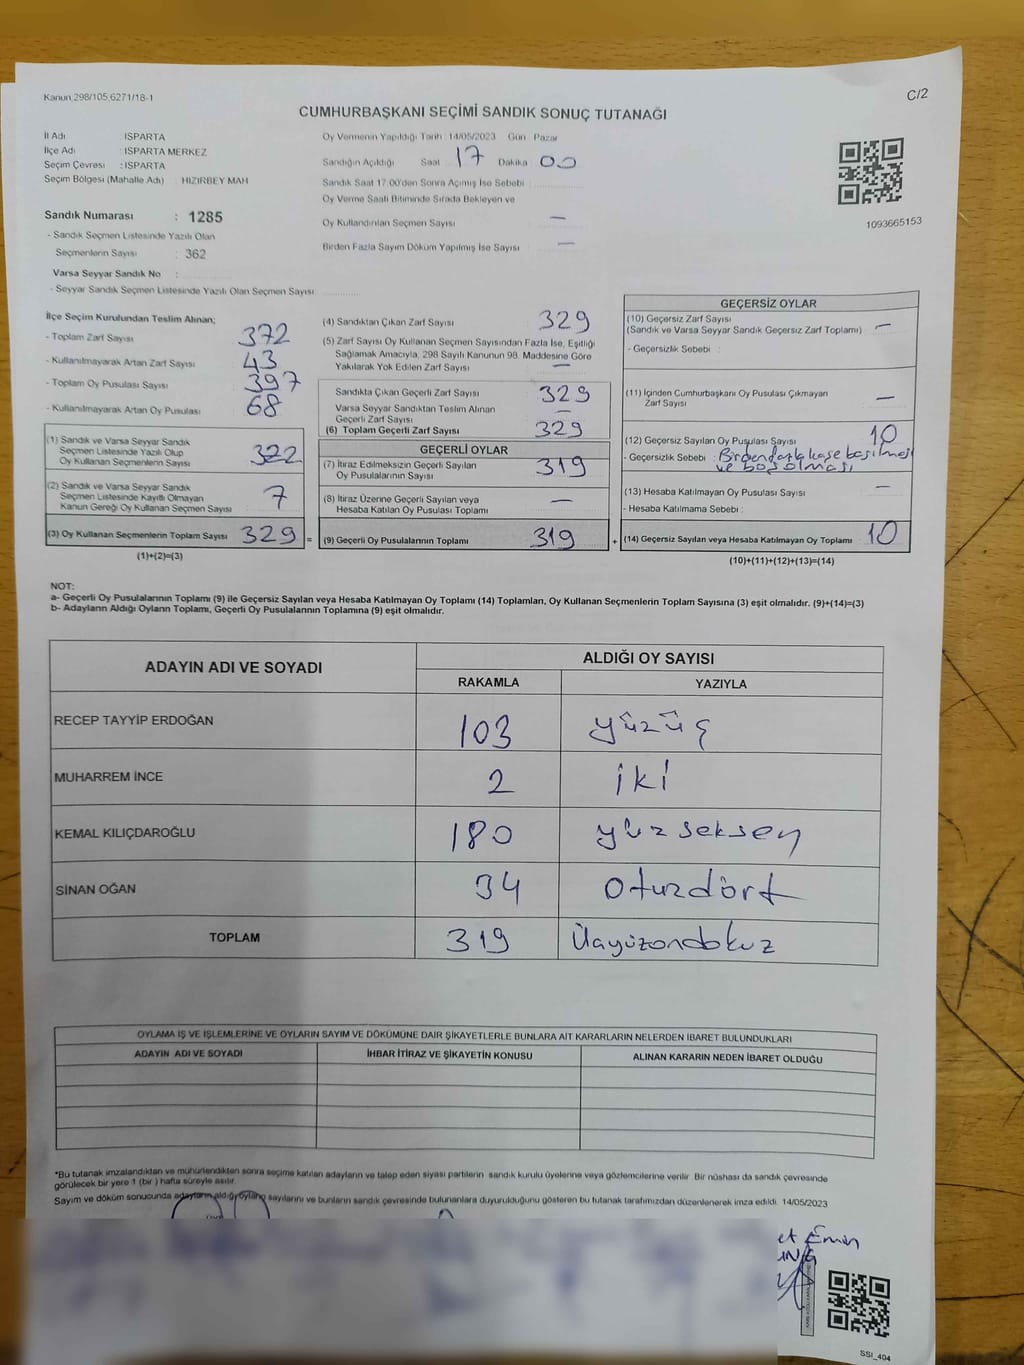 Kanun:298/105;6271/18-1
C/2
CUMHURBAŞKANI SEÇİMİ SANDIK SONUÇ TUTANAĞI
İl Adı : ISPARTA
İlçe Adı : ISPARTA MERKEZ
Seçim Çevresi : ISPARTA
Seçim Bölgesi (Mahalle Adı) : HIZIRBEY MAH
Oy Vermenin Yapıldığı Tarih : 14/05/2023 Gün : Pazar
Sandığın Açıldığı Saat : 17 Dakika : 00
Sandık Saat 17:00'den Sonra Açılmış İse Sebebi :
Oy Verme Saati Bitiminde Sırada Bekleyen ve
Oy Kullandırılan Seçmen Sayısı : —
Birden Fazla Sayım Döküm Yapılmış İse Sayısı : —
1093665153
Sandık Numarası : 1285
- Sandık Seçmen Listesinde Yazılı Olan
Seçmenlerin Sayısı : 362
Varsa Seyyar Sandık No :
- Seyyar Sandık Seçmen Listesinde Yazılı Olan Seçmen Sayısı:
İlçe Seçim Kurulundan Teslim Alınan;
- Toplam Zarf Sayısı : 372
- Kullanılmayarak Artan Zarf Sayısı : 43
- Toplam Oy Pusulası Sayısı : 397
- Kullanılmayarak Artan Oy Pusulası : 68
(1) Sandık ve Varsa Seyyar Sandık
Seçmen Listesinde Yazılı Olup
Oy Kullanan Seçmenlerin Sayısı : 322
(2) Sandık ve Varsa Seyyar Sandık
Seçmen Listesinde Kayıtlı Olmayan
Kanun Gereği Oy Kullanan Seçmen Sayısı : 7
(3) Oy Kullanan Seçmenlerin Toplam Sayısı : 329 =
(1)+(2)=(3)
(4) Sandıktan Çıkan Zarf Sayısı : 329
(5) Zarf Sayısı Oy Kullanan Seçmen Sayısından Fazla İse, Eşitliği
Sağlamak Amacıyla, 298 Sayılı Kanunun 98. Maddesine Göre
Yakılarak Yok Edilen Zarf Sayısı : —
Sandıkta Çıkan Geçerli Zarf Sayısı : 329
Varsa Seyyar Sandıktan Teslim Alınan
Geçerli Zarf Sayısı : —
(6) Toplam Geçerli Zarf Sayısı : 329
GEÇERLİ OYLAR
(7) İtiraz Edilmeksizin Geçerli Sayılan
Oy Pusulalarının Sayısı : 319
(8) İtiraz Üzerine Geçerli Sayılan veya
Hesaba Katılan Oy Pusulası Toplamı : —
(9) Geçerli Oy Pusulalarının Toplamı : 319 +
GEÇERSİZ OYLAR
(10) Geçersiz Zarf Sayısı : —
(Sandık ve Varsa Seyyar Sandık Geçersiz Zarf Toplamı)
- Geçersizlik Sebebi :
(11) İçinden Cumhurbaşkanı Oy Pusulası Çıkmayan
Zarf Sayısı : —
(12) Geçersiz Sayılan Oy Pusulası Sayısı : 10
- Geçersizlik Sebebi : Birden fazla kaşe basılması
ve boş olması
(13) Hesaba Katılmayan Oy Pusulası Sayısı : —
- Hesaba Katılmama Sebebi :
(14) Geçersiz Sayılan veya Hesaba Katılmayan Oy Toplamı : 10
(10)+(11)+(12)+(13)=(14)
NOT:
a- Geçerli Oy Pusulalarının Toplamı (9) ile Geçersiz Sayılan veya Hesaba Katılmayan Oy Toplamı (14) Toplamları, Oy Kullanan Seçmenlerin Toplam Sayısına (3) eşit olmalıdır. (9)+(14)=(3)
b- Adayların Aldığı Oyların Toplamı, Geçerli Oy Pusulalarının Toplamına (9) eşit olmalıdır.
ADAYIN ADI VE SOYADI
ALDIĞI OY SAYISI
RAKAMLA YAZIYLA
RECEP TAYYİP ERDOĞAN 103 yüzüç
MUHARREM İNCE 2 iki
KEMAL KILIÇDAROĞLU 180 yüzseksen
SİNAN OĞAN 34 Otuzdört
TOPLAM 319 Üçyüzondokuz
OYLAMA İŞ VE İŞLEMLERİNE VE OYLARIN SAYIM VE DÖKÜMÜNE DAİR ŞİKAYETLERLE BUNLARA AİT KARARLARIN NELERDEN İBARET BULUNDUKLARI
ADAYIN ADI VE SOYADI İHBAR İTİRAZ VE ŞİKAYETİN KONUSU ALINAN KARARIN NEDEN İBARET OLDUĞU
*Bu tutanak imzalandıktan ve mühürlendikten sonra seçime katılan adayların ve talep eden siyasi partilerin sandık kurulu üyelerine veya gözlemcilerine verilir. Bir nüshası da sandık çevresinde
görülecek bir yere 1 (bir) hafta süreyle asılır.
Sayım ve döküm sonucunda adayların aldığı oyların sayılarını ve bunların sandık çevresinde bulunanlara duyurulduğunu gösteren bu tutanak tarafımızdan düzenlenerek imza edildi. 14/05/2023
et Emin
SSI_404